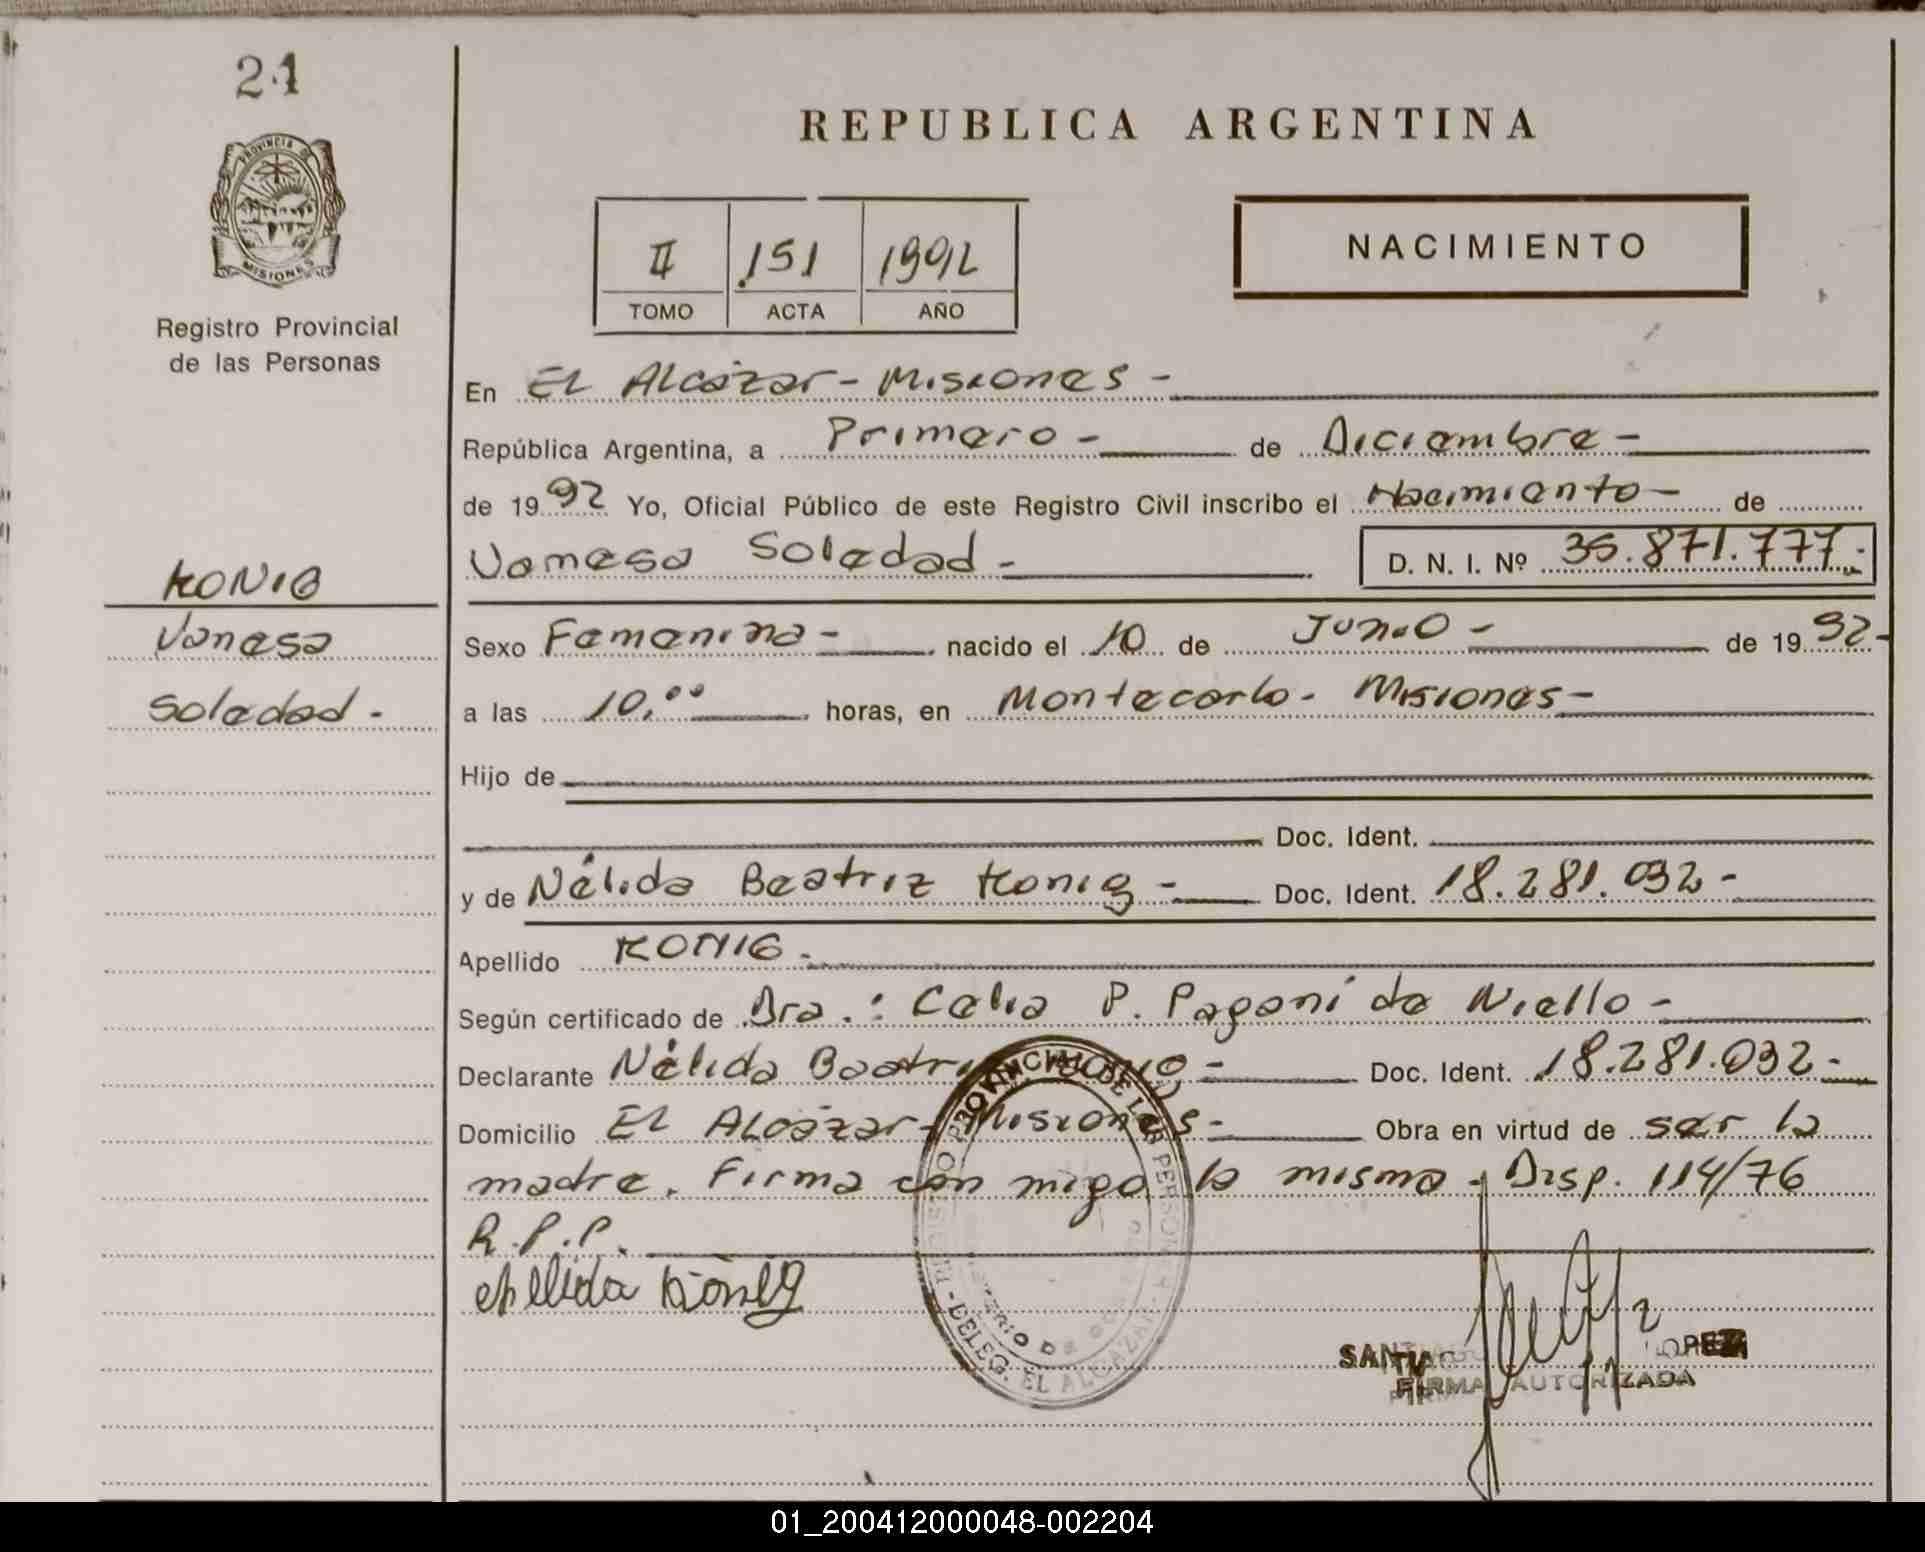 21
PROVINCIA DE
MISIONES
Registro Provincial
de las Personas
KONIG
Vanesa
Soledad -
REPUBLICA ARGENTINA
II 151 1992
TOMO ACTA AÑO
NACIMIENTO
En El Alcázar - Misiones -
República Argentina, a Primero - de Diciembre -
de 1992 Yo, Oficial Público de este Registro Civil inscribo el Nacimiento - de
Vanesa Soledad - D. N. I. Nº 35.871.777.-
Sexo Femenino - nacido el 10 de Junio - de 1992-
a las 10,00 horas, en Montecarlo - Misiones -
Hijo de
Doc. Ident.
y de Nélida Beatriz Konig - Doc. Ident. 18.281.032-
Apellido KONIG.-
Según certificado de Dra.: Celia P. Pagani de Niello -
Declarante Nélida Beatriz Konig - Doc. Ident. 18.281.032-
Domicilio El Alcázar - Misiones - Obra en virtud de ser la
madre. Firma con migo la misma. Disp. 114/76
R.P.P.
Nellida König
REGISTRO PROVINCIAL DE LAS PERSONAS
MINISTERIO DE GOBIERNO
- DELEG. EL ALCAZAR -
SANTIAGO LOPEZ
FIRMA AUTORIZADA
01_200412000048-002204